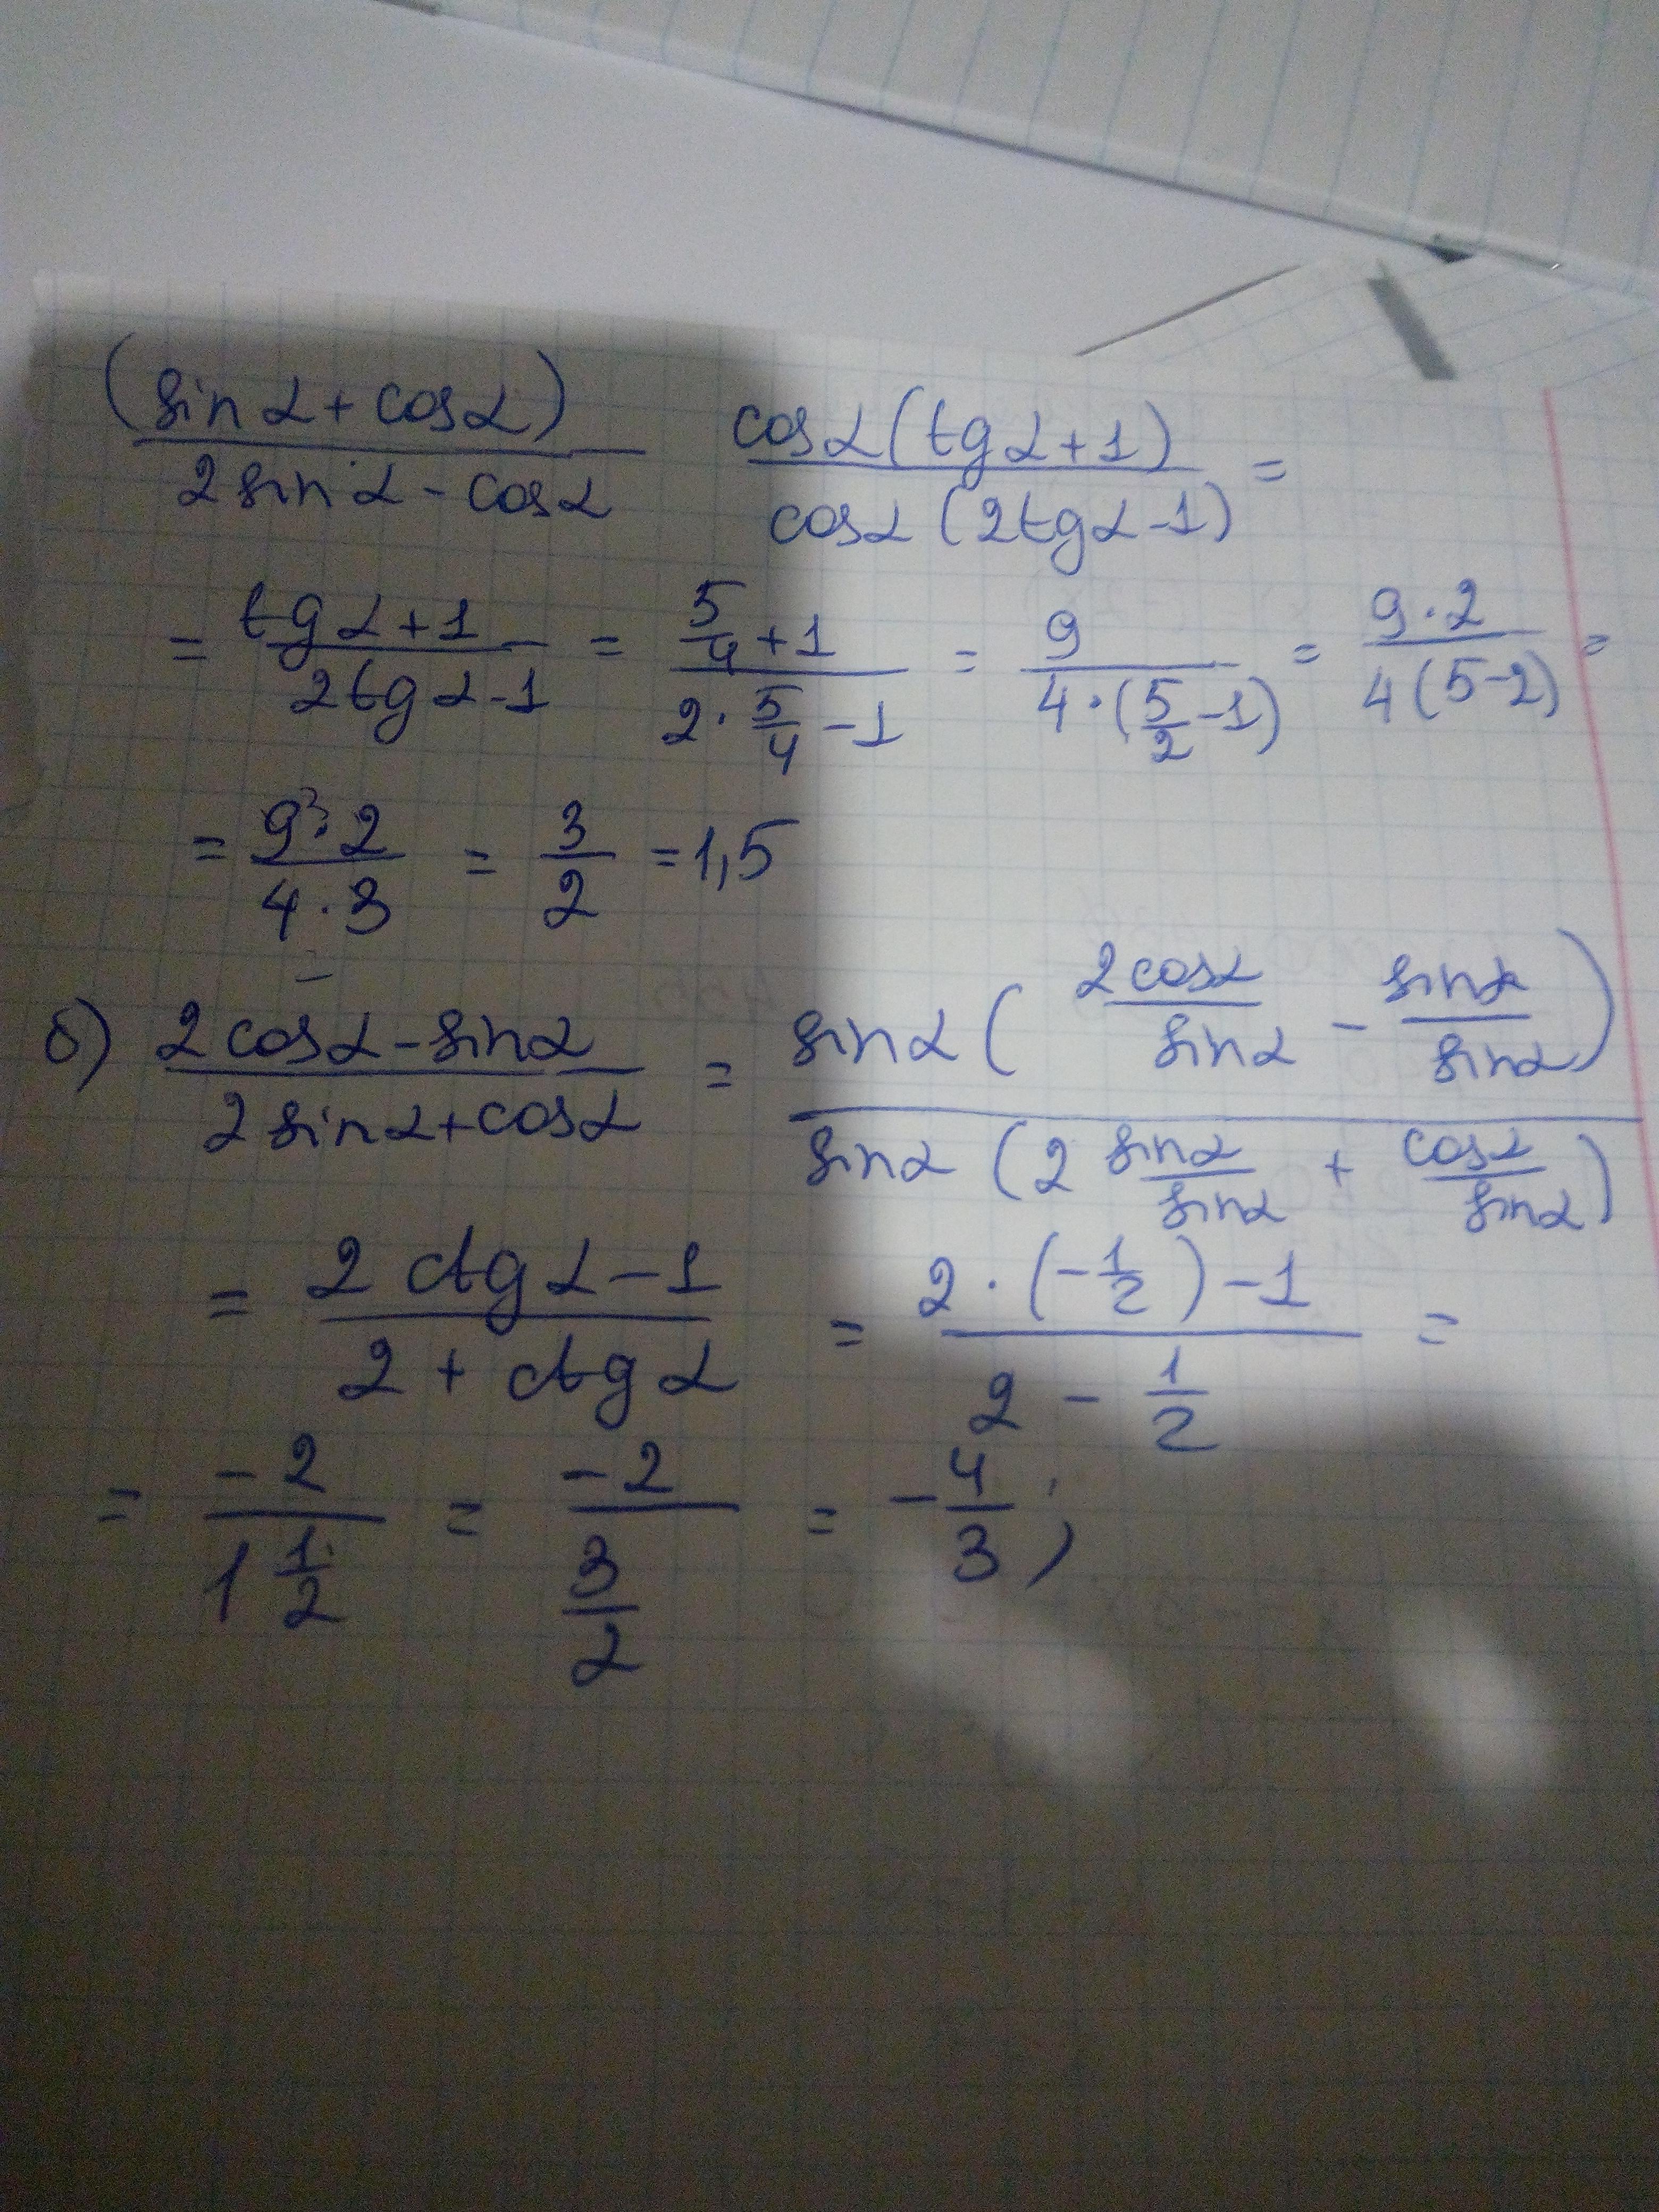 (sin α + cos α) / (2 sin α - cos α)   cos α (tg α + 1) / cos α (2tg α - 1) =
= (tg α + 1) / (2tg α - 1) = (5/4 + 1) / (2 · 5/4 - 1) = 9 / (4 · (5/2 - 1)) = 9 · 2 / 4(5-2) =
= 9³ · 2 / 4 · 3 = 3/2 = 1,5
б) (2 cos α - sin α) / (2 sin α + cos α) = sin α (2 cos α / sin α - sin α / sin α) / sin α (2 sin α / sin α + cos α / sin α)
= (2 ctg α - 1) / (2 + ctg α) = (2 · (-1/2) - 1) / (2 - 1/2) =
= -2 / 1 1/2 = -2 / (3/2) = - 4/3 ;